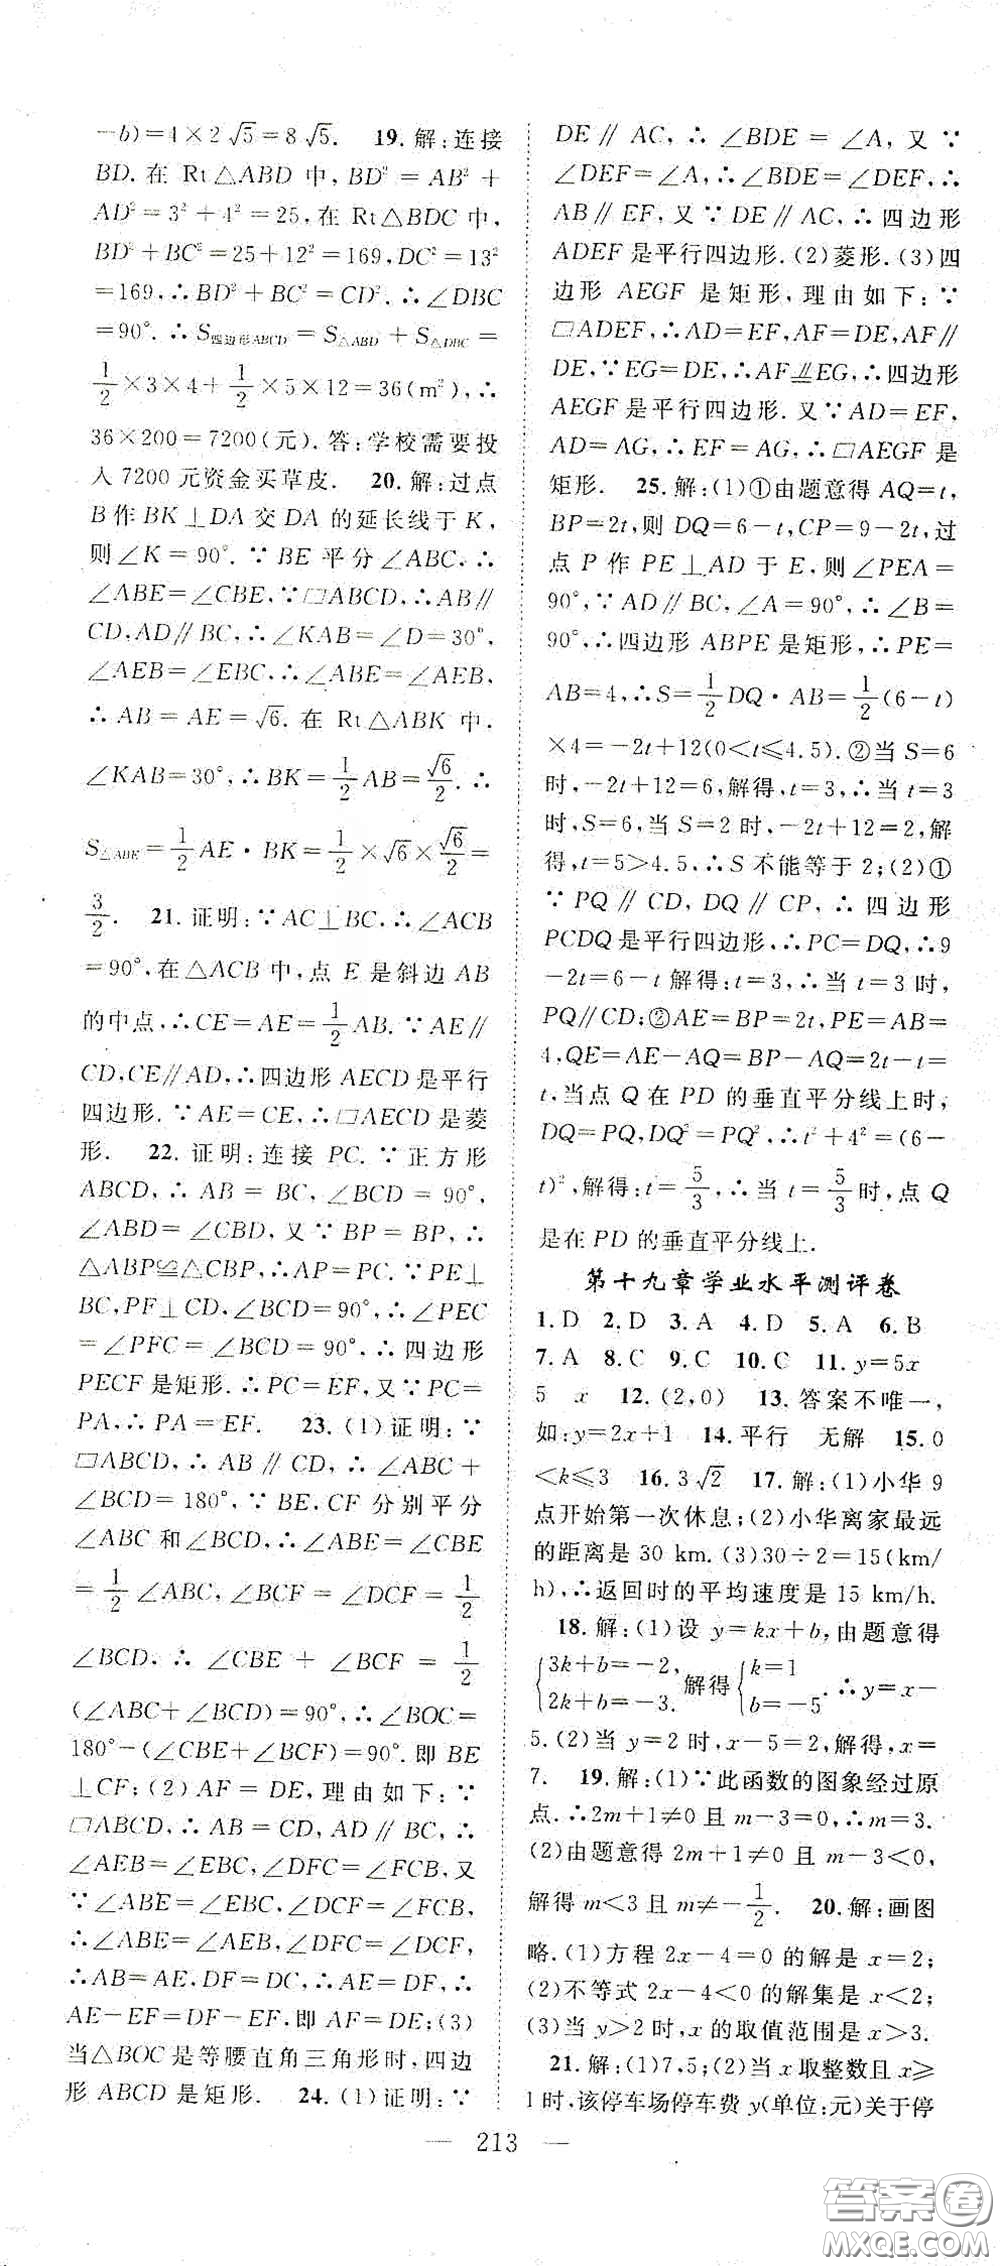 -b)=4×2√5=8√5. 19. 解:连接
BD. 在 Rt△ABD 中, BD²=AB²+
AD²=3²+4²=25, 在 Rt△BDC 中,
BD²+BC²=25+12²=169, DC²=13²
=169, ∴BD²+BC²=CD², ∴∠DBC
=90°. ∴S四边形ABCD=S△ABD+S△DBC=
1/2×3×4+1/2×5×12=36(m²), ∴
36×200=7200(元). 答:学校需要投
入 7200 元资金买草皮. 20. 解:过点
B 作 BK⊥DA 交 DA 的延长线于 K,
则∠K=90°. ∵BE 平分∠ABC, ∴
∠ABE=∠CBE, ∵▱ABCD, ∴AB∥
CD, AD∥BC, ∴∠KAB=∠D=30°,
∠AEB=∠EBC, ∴∠ABE=∠AEB,
∴AB=AE=√6. 在 Rt△ABK 中,
∠KAB=30°, ∴BK=1/2AB=√6/2. ∴
S△ABE=1/2AE·BK=1/2×√6×√6/2=
3/2. 21. 证明:∵AC⊥BC, ∴∠ACB
=90°, 在△ACB 中, 点 E 是斜边 AB
的中点, ∴CE=AE=1/2AB. ∵AE∥
CD, CE∥AD, ∴四边形 AECD 是平行
四边形. ∵AE=CE, ∴▱AECD 是菱
形. 22. 证明:连接 PC. ∵正方形
ABCD, ∴AB=BC, ∠BCD=90°,
∠ABD=∠CBD, 又∵BP=BP, ∴
△ABP≌△CBP, ∴AP=PC. ∵PE⊥
BC, PF⊥CD, ∠BCD=90°, ∴∠PEC
=∠PFC=∠BCD=90°, ∴四边形
PECF 是矩形. ∴PC=EF, 又∵PC=
PA, ∴PA=EF. 23. (1)证明:∵
▱ABCD, ∴AB∥CD, ∴∠ABC+
∠BCD=180°, ∵BE、CF 分别平分
∠ABC 和∠BCD, ∴∠ABE=∠CBE
=1/2∠ABC, ∠BCF=∠DCF=1/2
∠BCD, ∴∠CBE+∠BCF=1/2
(∠ABC+∠BCD)=90°, ∴∠BOC=
180°-(∠CBE+∠BCF)=90°. 即 BE
⊥CF; (2)AF=DE, 理由如下:∵
▱ABCD, ∴AB=CD, AD∥BC, ∴
∠AEB=∠EBC, ∠DFC=∠FCB, 又
∵∠ABE=∠EBC, ∠DCF=∠FCB,
∴∠ABE=∠AEB, ∠DFC=∠DCF,
∴AB=AE, DF=DC, ∴AE=DF, ∴
AE-EF=DF-EF, 即 AF=DE; (3)
当△BOC 是等腰直角三角形时, 四边
形 ABCD 是矩形. 24. (1)证明:∵
DE∥AC, ∴∠BDE=∠A, 又∵
∠DEF=∠A, ∴∠BDE=∠DEF, ∴
AB∥EF, 又∵DE∥AC, ∴四边形
ADEF 是平行四边形. (2)菱形. (3)四
边形 AEGF 是矩形, 理由如下:∵
▱ADEF, ∴AD=EF, AF=DE, AF∥
DE, ∵EG=DE, ∴AF⫽EG, ∴四边形
AEGF 是平行四边形. 又∵AD=EF,
AD=AG, ∴EF=AG, ∴▱AEGF 是
矩形. 25. 解:(1)①由题意得 AQ=t,
BP=2t, 则 DQ=6-t, CP=9-2t, 过
点 P 作 PE⊥AD 于 E, ∠PEA=
90°, ∵AD∥BC, ∠A=90°, ∴∠B=
90°, ∴四边形 ABPE 是矩形, ∴PE=
AB=4, ∴S=1/2DQ·AB=1/2(6-t)
×4=-2t+12(0<t≤4.5). ②当 S=6
时, -2t+12=6, 解得, t=3, ∴当 t=3
时, S=6, 当 S=2 时, -2t+12=2, 解
得, t=5>4.5, ∴S 不能等于 2; (2)①
∵PQ∥CD, DQ∥CP, ∴四边形
PCDQ 是平行四边形, ∴PC=DQ, ∴9
-2t=6-t 解得:t=3, ∴当 t=3 时,
PQ∥CD; ②AE=BP=2t, PE=AB=
4, QE=AE-AQ=BP-AQ=2t-t=
t, 当点 Q 在 PD 的垂直平分线上时,
DQ=PQ, DQ²=PQ², ∴t²+4²=(6-
t)², 解得:t=5/3, ∴当 t=5/3 时, 点 Q
是在 PD 的垂直平分线上.
第十九章学业水平测评卷
1. D 2. D 3. A 4. D 5. A 6. B
7. A 8. C 9. C 10. C 11. y=5x
5 x 12. (2,0) 13. 答案不唯一,
如:y=2x+1 14. 平行 无解 15. 0
<k≤3 16. 3√2 17. 解:(1)小华 9
点开始第一次休息; (2)小华离家最远
的距离是 30 km. (3)30÷2=15(km/
h), ∴返回时的平均速度是 15 km/h.
18. 解:(1)设 y=kx+b, 由题意得
{3k+b=-2, 2k+b=-3. 解得{k=1 b=-5. ∴y=x-
5. (2)当 y=2 时, x-5=2, ∴x=
7. 19. 解:(1)∵此函数的图象经过原
点. ∴2m+1≠0 且 m-3=0, ∴m=3.
(2)由题意得 2m+1≠0 且 m-3<0,
解得 m<3 且 m≠-1/2. 20. 解:画图
略. (1)方程 2x-4=0 的解是 x=2;
(2)不等式 2x-4<0 的解集是 x<2;
(3)当 y>2 时, x 的取值范围是 x>3.
21. 解:(1)7, 5; (2)当 x 取整数且 x≥
1 时, 该停车场停车费 y(单位:元)关于停
— 213 —
答案卷
MXQE.COM